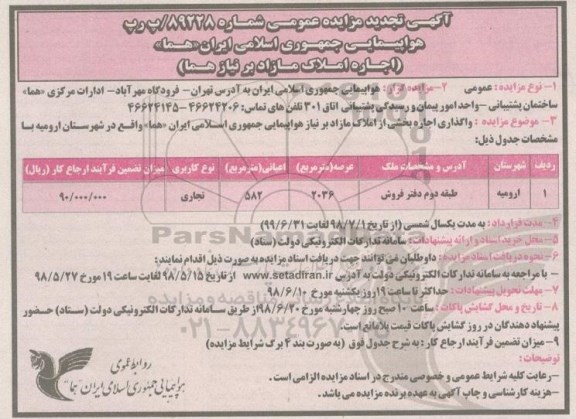 آگهی تجدید مزایده عمومی شماره ۸۹۲۲۸/پ رپ
هواپیمایی جمهوری اسلامی ایران «هما»
(اجاره املاک مازاد بر نیاز هما)
۱- نوع مزایده: عمومی ۲- مزایده گزار: هواپیمایی جمهوری اسلامی ایران به آدرس تهران- فرودگاه مهرآباد- ادارات مرکزی «هما»
ساختمان پشتیبانی -واحد امور پیمان و رسیدگی پشتیبانی اتاق ۳۰۱ تلفن های تماس: ۴۶۶۲۴۲۰۶ -۴۶۶۲۴۱۴۵
۳- موضوع مزایده : واگذاری اجاره بخشی از املاک مازاد بر نیاز هواپیمایی جمهوری اسلامی ایران «هما» واقع در شهرستان ارومیه با
مشخصات جدول ذیل:
ردیف شهرستان آدرس و مشخصات ملک عرصه(مترمربع) اعیانی(مترمربع) نوع کاربری میزان تضمین فرآیند ارجاع کار (ریال)
۱ ارومیه طبقه دوم دفتر فروش ۲۰۳۶ ۵۸۲ تجاری ۹۰/۰۰۰/۰۰۰
۴- مدت قرارداد : به مدت یکسال شمسی (از تاریخ ۹۸/۷/۱ لغایت ۹۹/۶/۳۱)
۵- محل خرید اسناد و ارائه پیشنهادات: سامانه تدارکات الکترونیکی دولت (ستاد)
۶- نحوه دریافت اسناد مزایده : داوطلبان می توانند جهت دریافت اسناد مزایده به صورت ذیل اقدام نمایند:
- با مراجعه به سامانه تدارکات الکترونیکی دولت به آدرس www.setadiran.ir از تاریخ ۹۸/۵/۱۵ لغایت ساعت ۱۹ مورخ ۹۸/۵/۲۷
۷- مهلت تحویل پیشنهادات : حداکثر تا ساعت ۱۹ روز یکشنبه مورخ ۹۸/۶/۱۰
۸- تاریخ و محل گشایش پاکات: ساعت ۱۰ صبح روز چهارشنبه مورخ ۹۸/۶/۲۰ از طریق سامانه تدارکات الکترونیکی دولت (ستاد) حضور
پیشنهاد دهندگان در روز گشایش پاکات قیمت بلامانع است.
۹- میزان تضمین فرآیند ارجاع کار : به شرح جدول فوق (به صورت بند ۴ برگ شرایط مزایده)
توضیحات:
- رعایت کلیه شرایط عمومی و خصوصی مندرج در اسناد مزایده الزامی است.
- هزینه کارشناسی و چاپ آگهی به عهده برنده مزایده می باشد.
روابط عمومی
هواپیمایی جمهوری اسلامی ایران "هما"
ParsNamadData
۰۲۱-۸۸۳۴۹۶۷۰